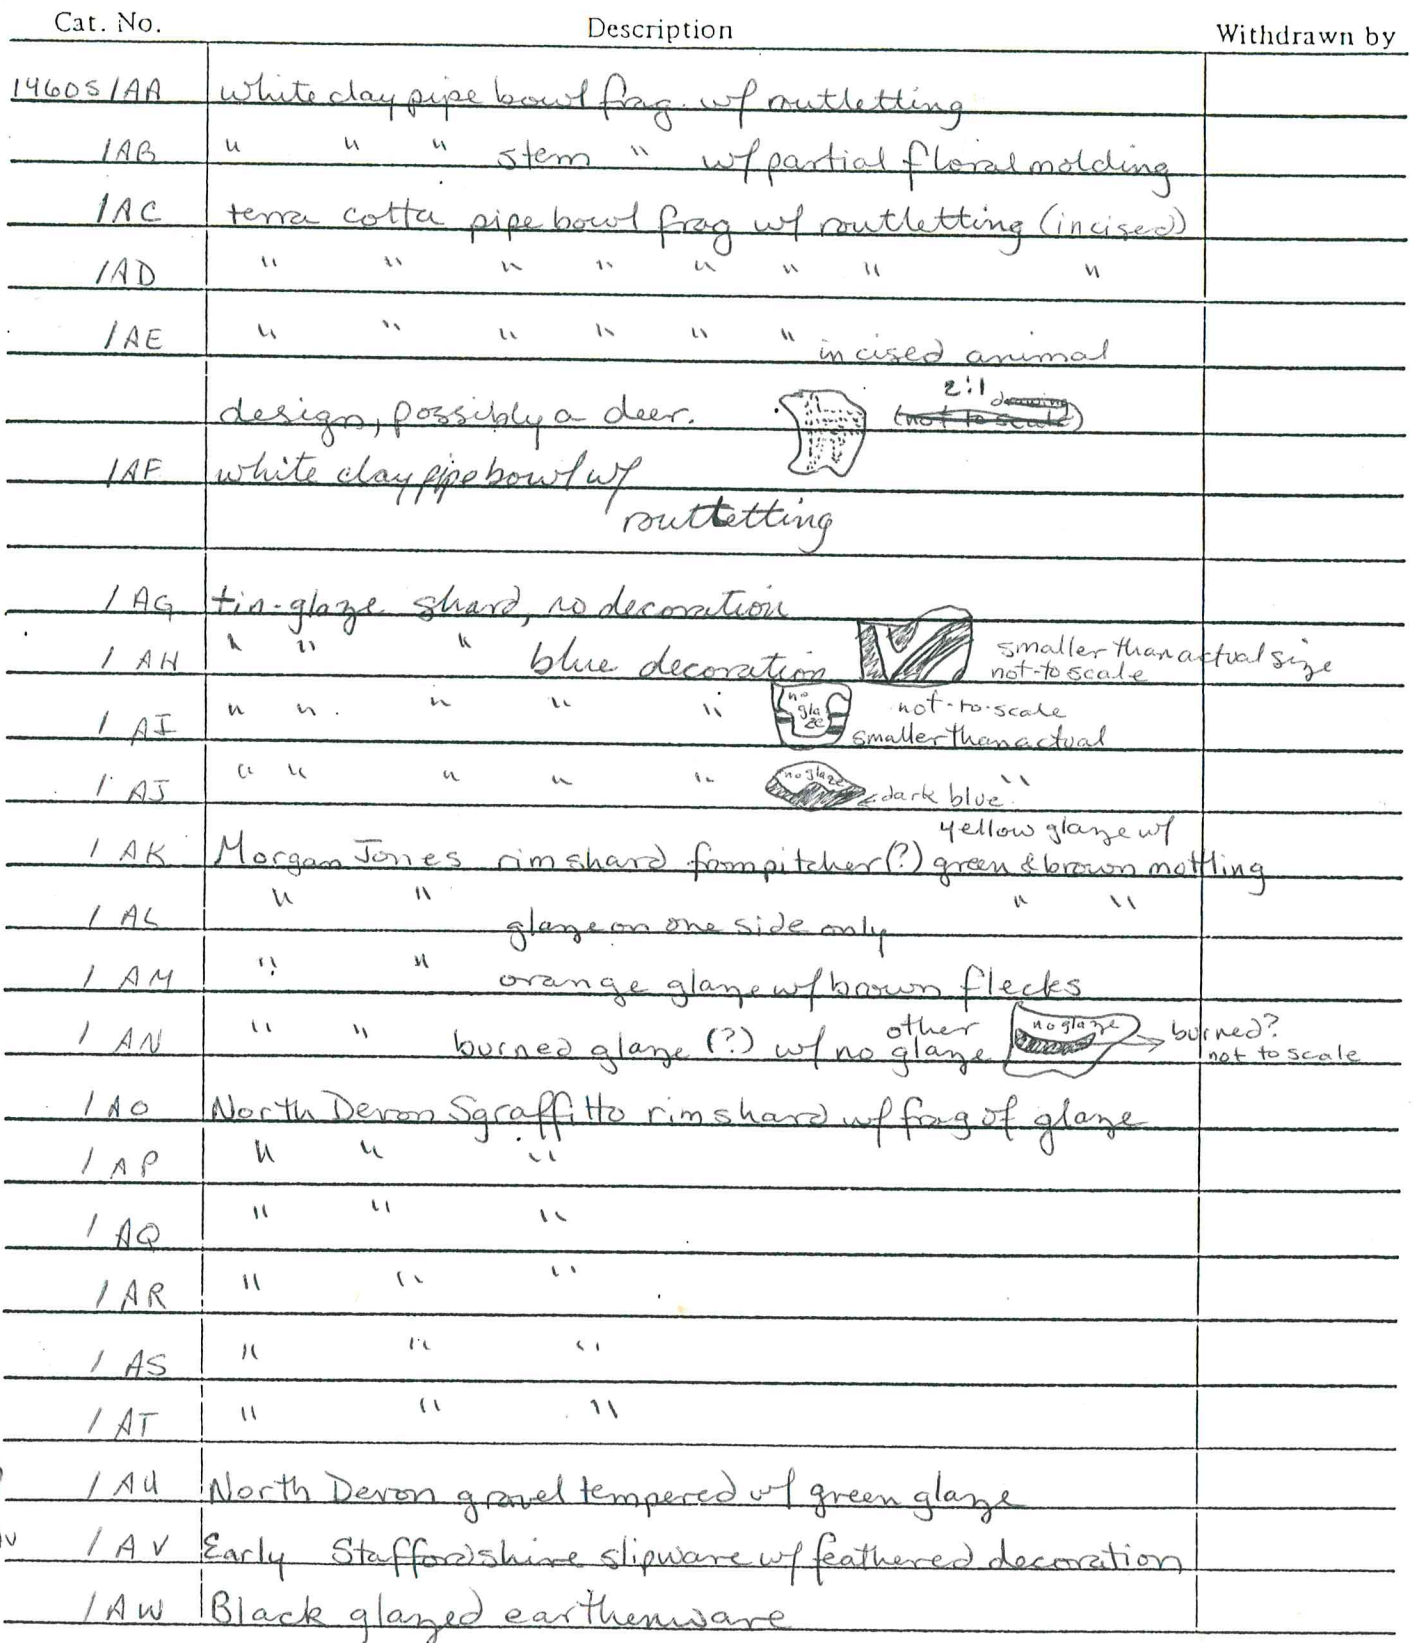 Cat. No. Description Withdrawn by
1460S/AA white clay pipe bowl frag. w/ routletting
/AB " " " stem " w/ partial floral molding
/AC terra cotta pipe bowl frag w/ routletting (incised)
/AD " " " " " " " "
/AE " " " " " " incised animal
design, possibly a deer. 2:1 drawing (not to scale)
/AF white clay pipe bowl w/
routletting
/AG tin-glaze shard, no decoration
/AH " " " blue decoration smaller than actual size
not-to scale
/AI " " " " " no glaze not-to-scale
smaller than actual
/AJ " " " " " no glaze "
dark blue
yellow glaze w/
/AK Morgan Jones rim shard from pitcher(?) green & brown mottling
/AL " " glaze on one side only " "
/AM " " orange glaze w/ brown flecks
/AN " " burned glaze (?) w/ no glaze other no glaze burned?
not to scale
/AO North Devon Sgraffitto rim shard w/ frag of glaze
/AP " " "
/AQ " " "
/AR " " "
/AS " " "
/AT " " "
/AU North Devon gravel tempered w/ green glaze
/AV Early Staffordshire slipware w/ feathered decoration
/AW Black glazed earthenware